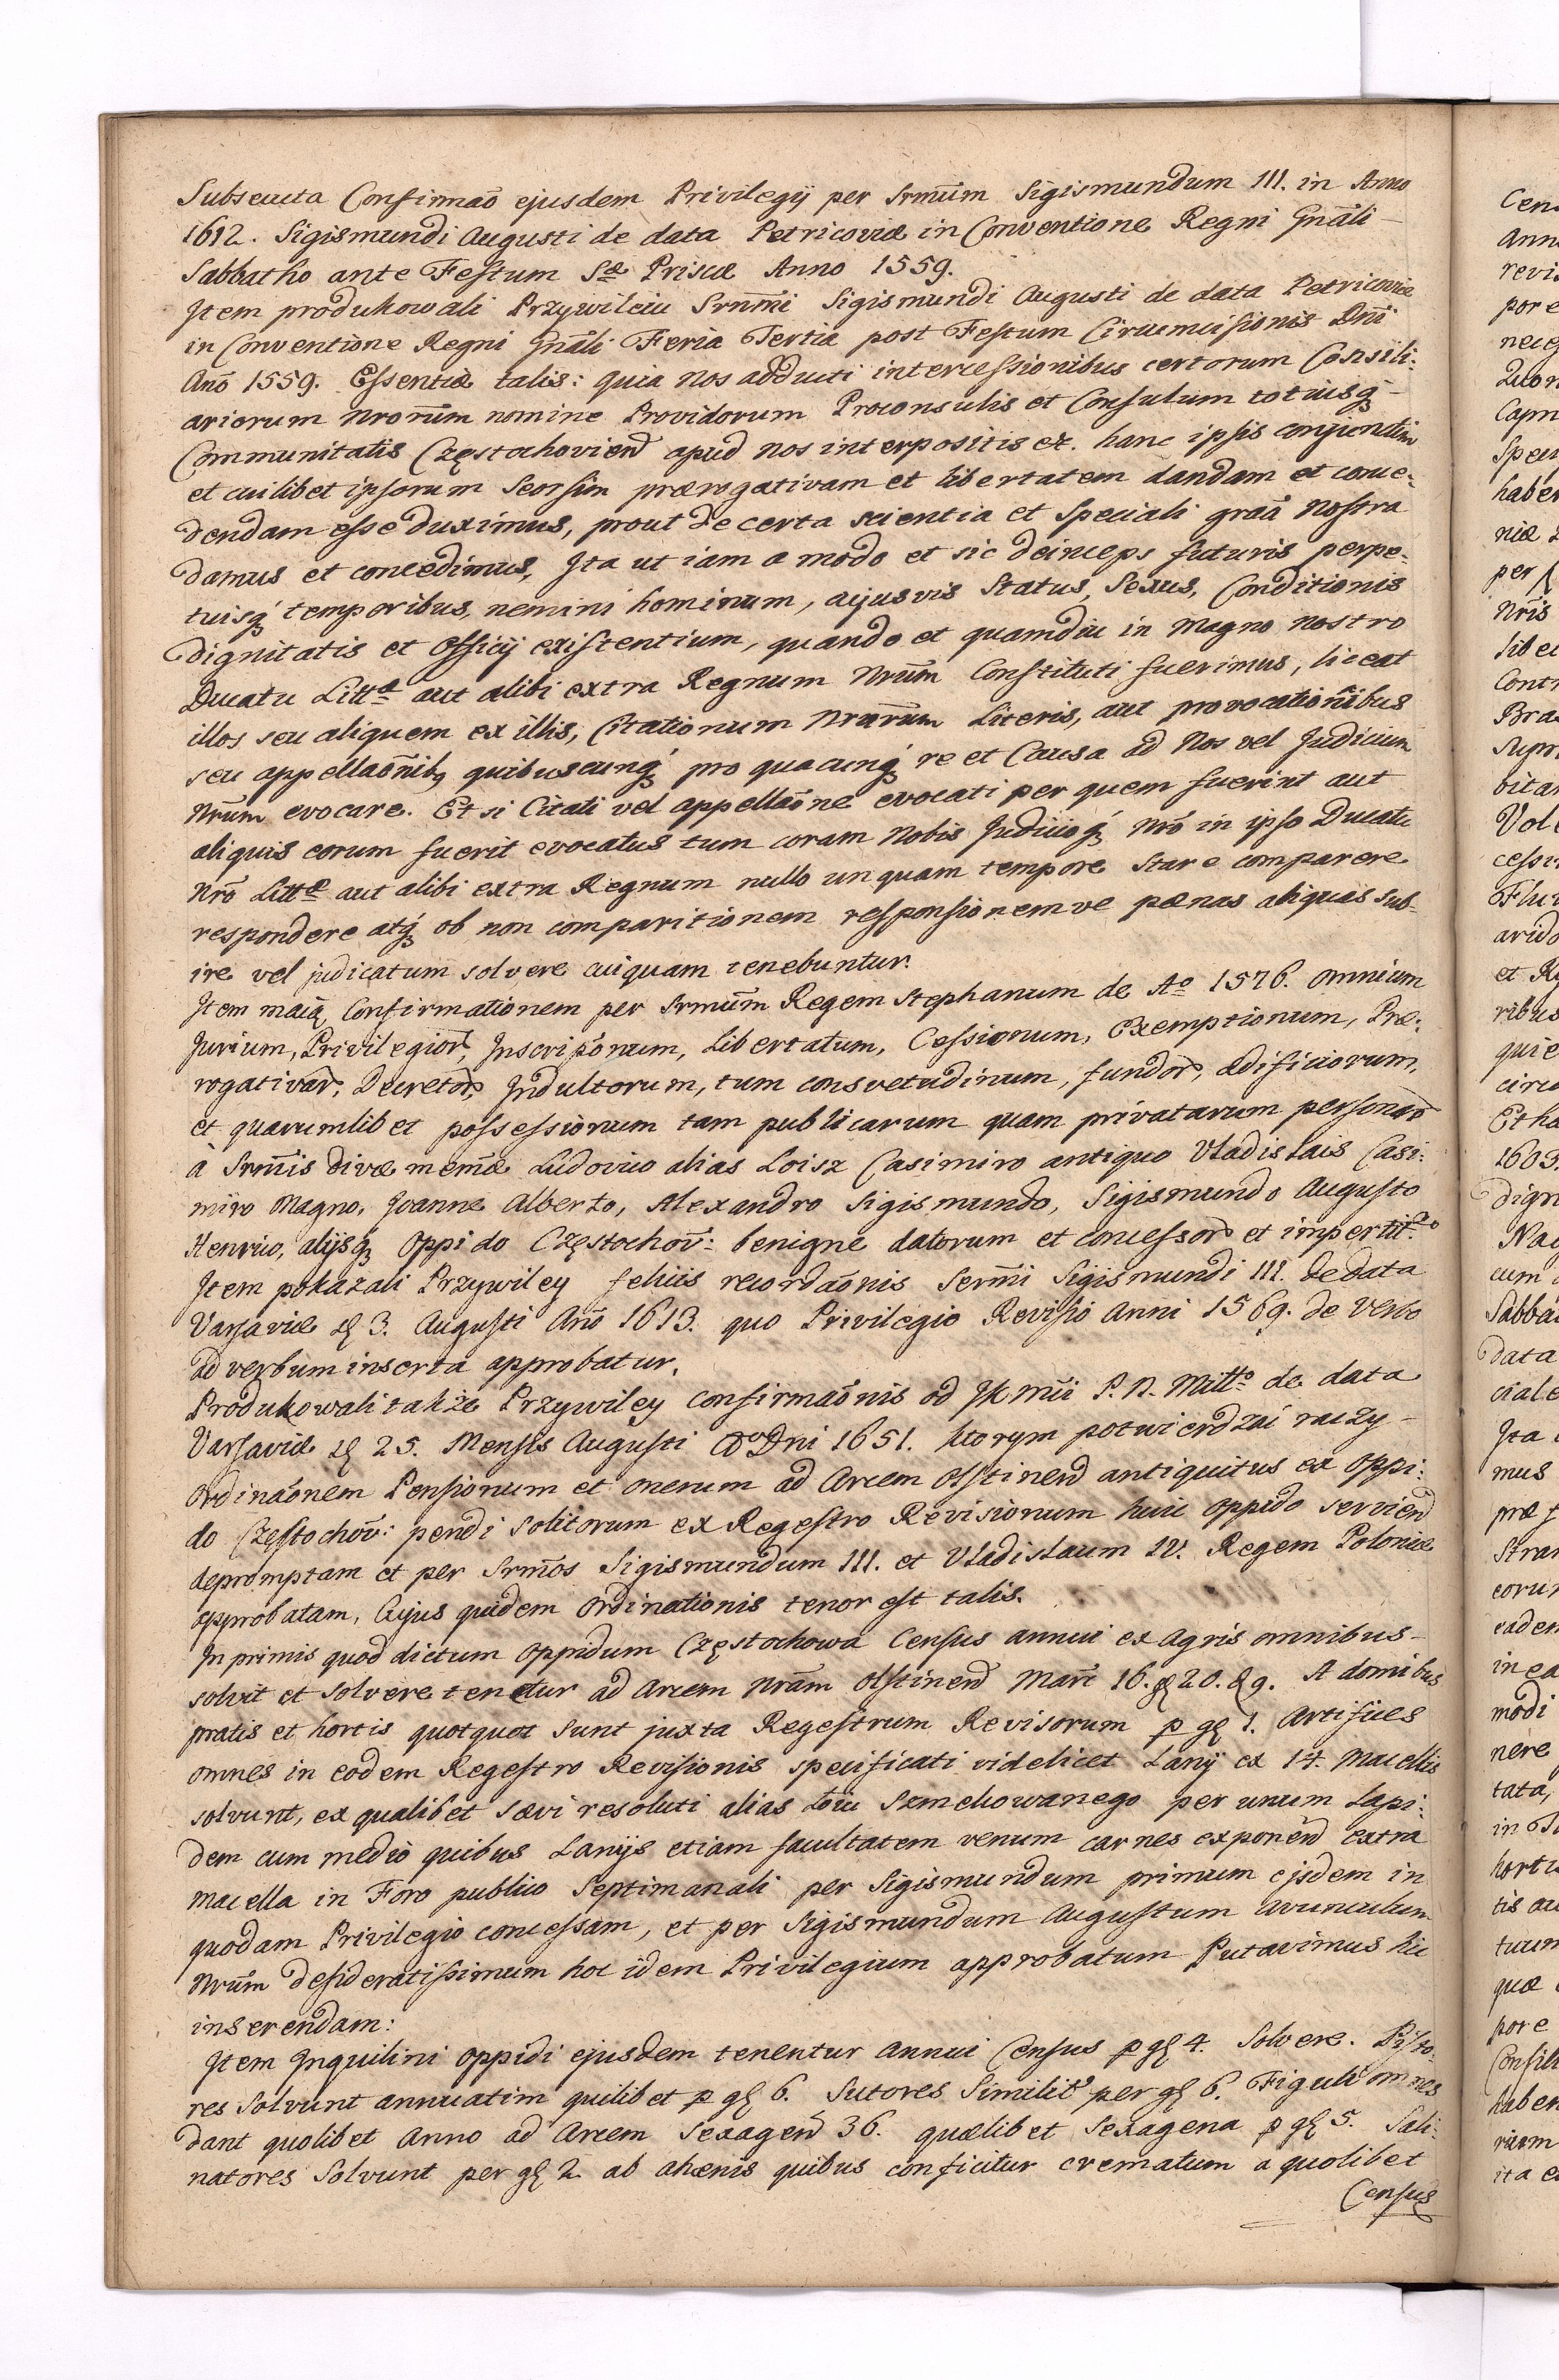 Subsecuta Confirmaõ ejusdem Privilegÿ per Srm̃um Sigismundum III. in Anno
1612. Sigismundi Augusti de data Petricoviæ in Conventione Regni Gnãli –
Sabbatho ante Festum Sæ Priscæ Anno 1559.
Item produkowali Przywileiu Srnm̃i Sigismundi Augusti de data Petricoviæ
in Conventione Regni Gnãli Feria Tertia post Festum Circumcisionis Dnĩ
Anõ 1559. Essentiæ talis: quia Nos adducti intercessionibus certorum Consili:
ariorum nrorũm nomine Providorum Proconsulis et Consulum totiusq́ –
Communitatis Częstochovień apud Nos interpositis et. hanc ipsis conjunctim
et cuilibet ipsorum seorsim prærogativam et libertatem dandam et conce:
dendam esse duximus, prout de certa scientia et speciali graã nostra
damus et concedimus, Ita ut iam a modo et sic deinceps futuris perpe-
tuisq́ temporibus, nemini hominum, cujusvis Status, Sexus, Conditionis
dignitatis et officij existentium, quando et quamdiu in Magno nostro
Ducatu Littæ aut alibi extra Regnum Nrũm Constituti fuerimus, liceat
illos seu aliquem ex illis, Citationum Nrarũm Literis, aut provocationibus
seu appellaõnibq quibuscunq́ pro quacunq́ re et Causa ad Nos vel Judicium
Nrũm evocare. Et si Citati vel appellaõne evocati per quem fuerint aut
aliquis eorum fuerit evocatus tum coram Nobis Judicioq́ Nrõ in ipso Ducatu
Nrõ Littæ aut alibi extra Regnum nullo unquam tempore stare comparere
respondere atq́ ob non comparitionem responsionemve pænas aliquas sub-
ire vel judicatum solvere cuiquam tenebuntur.
Item maią Confirmationem per Srmũm Regem Stephanum de Aº 1576. omnium
Jurium, Privilegior̃, Inscripõnum, Libertatum, Cessionum, Exemptionum, Præ:
rogativar̃, Decretor̃, Indultorum, tum consvetudinum, fundor̃, ædificiorum,
et quarumlibet possessionum tam publicarum quam privatarum personar̃
à Srm̃is divæ mem̃æ Ludovico alias Loisz Casimiro antiquo Vladislais Casi:
miro Magno, Joanne Alberto, Alexandro Sigismundo, Sigismundo Augusto
Henrico, alijsq́ Oppido Częstochov̄: benigne datorum et concessor̃ et impertit.º
Item pokazali Przywiley felicis recordaõnis Serm̃i Sigismundi III. de data
Varsaviæ d 3. Augusti Anõ 1613. quo Privilegio Revisio Anni 1569. de Verbo
ad verbum inserta approbatur.
Produkowali także Przywiley confirmaõnis od JK mci P. N. Mittº de data
Varsaviæ d 25. Mensis Augusti Aº Dni 1651. ktorym potwierdzai raczy –
ordinaõnem Pensionum et onerum ad Arcem Olstinend antiquitus ex oppi:
do Częstochov̄: pendi solitorum ex Regestro Revisionum huic oppido servień
depromptam et per Srm̃os Sigismundum III. et Vladislaum IV. Regem Poloniæ
approbatam, Cujus quidem Ordinationis tenor est talis.
In primis quod dictum Oppidum Częstochowa Census annui ex Agris omnibus –
solvit et solvere tenetur ad Arcem Nrãm Olstinend Marc̃ 16. g 20. d 9. A domibus
pratis et hortis quotquot sunt juxta Regestrum Revisorum p g 1. Artifices
omnes in eodem Regestro Revisionis specificati videlicet Lanij ex 14. Macellis
solvunt, ex qualibet sævi resoluti alias Łoiu Szmelcowanego per unum Lapi:
dem cum medio quibus Lanijs etiam facultatem venum carnes exponend extra
macella in Foro publico Septimanali per Sigismundum primum ejsdem in
quodam Privilegio concessam, et per Sigismundum Augustum avunculum
Nrũm desideratissimum hoc idem Privilegium approbatum Putavimus hic
inserendam:
Item Inquilini Oppidi ejusdem tenentur annui Census p g 4. Solvere. Pisto-
res solvunt annuatim quilibet p g 6. Sutores Similitʳ per g 6. Figuli omnes
dant quolibet Anno ad Arcem Sexagend 36. quælibet Sexagena p g 5. Sali:
natores Solvunt per g 2 ab ahenis quibus conficitur crematum a quolibet
Census